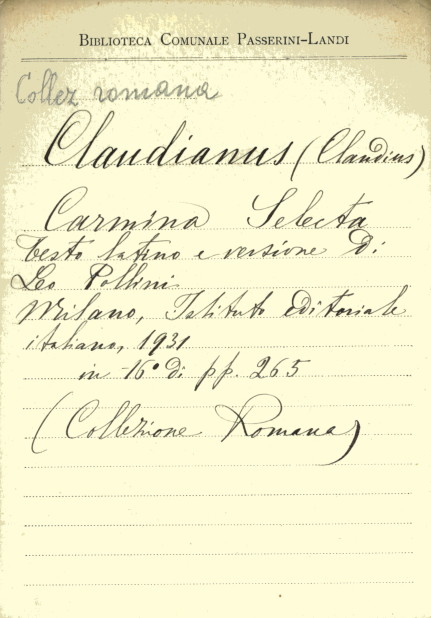 BIBLIOTECA COMUNALE PASSERINI-LANDI
Collez romana
Claudianus (Claudius)
Carmina Selecta
testo latino e versione di
Leo Pollini
Milano, Istituto editoriale
italiano, 1931
in 16° di pp. 265
(Collezione Romana)